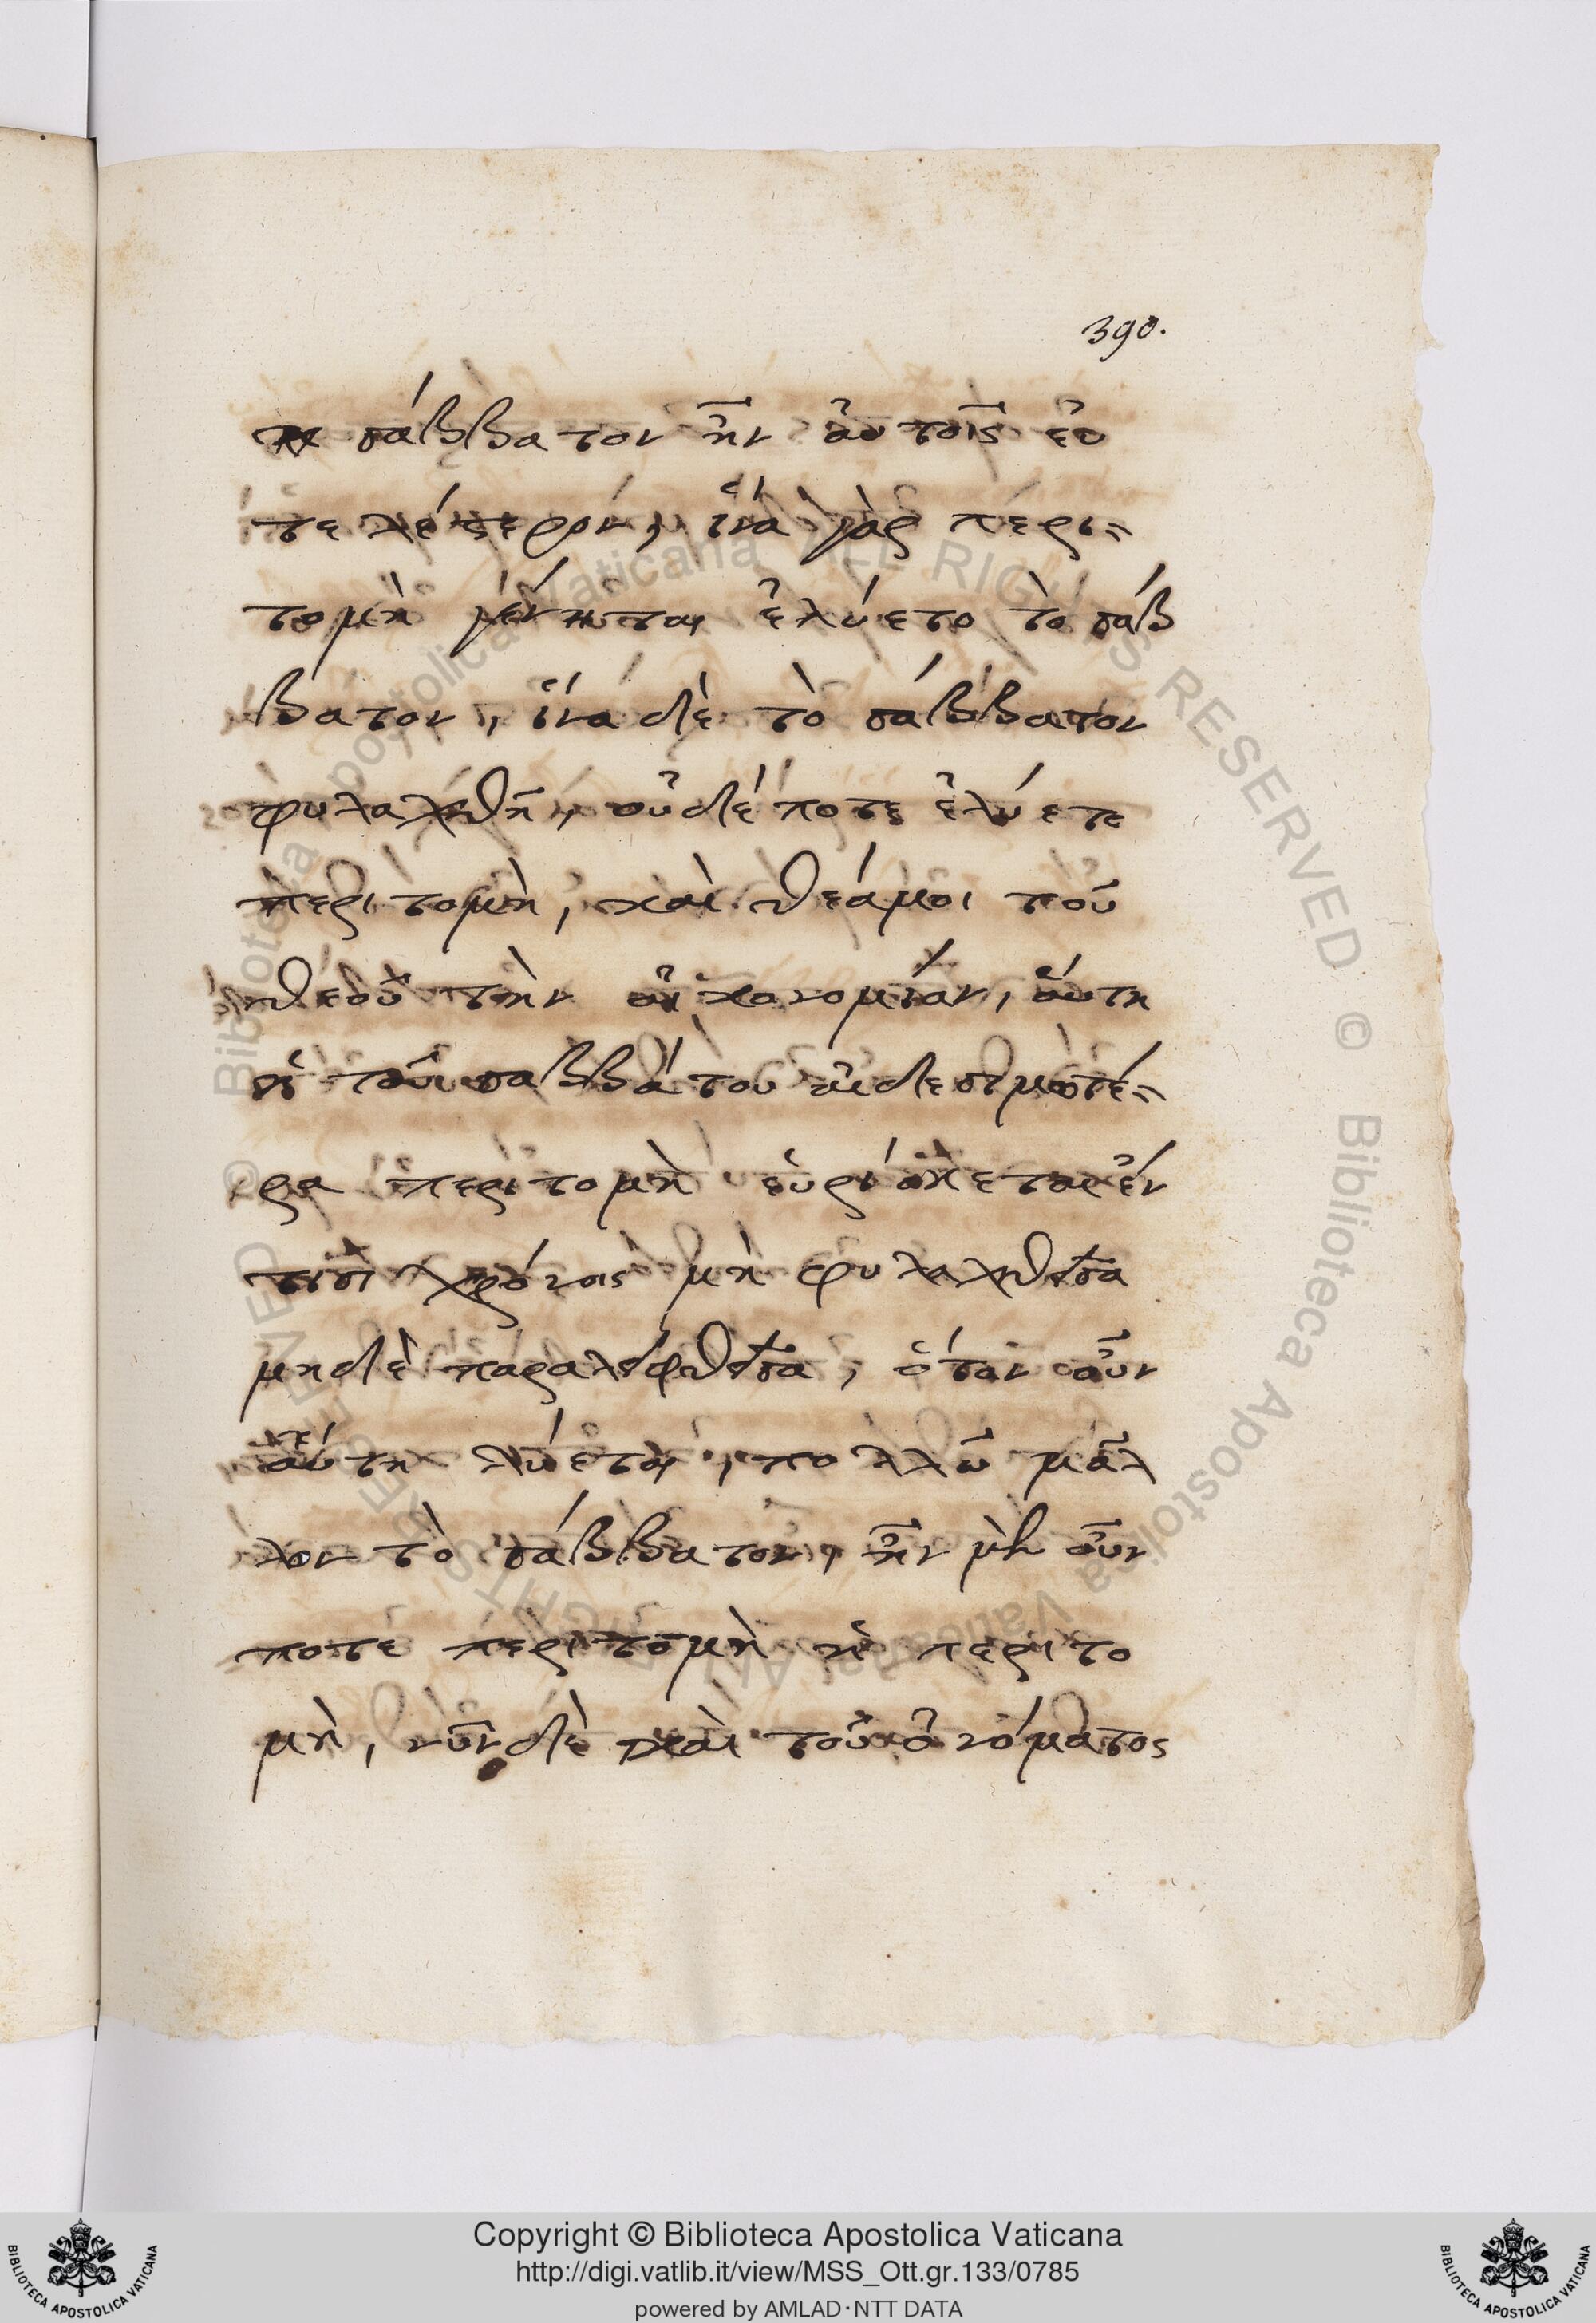 390.
σάββατον ἦν αὐτοῖς εὐ
τελέστερον, ἵνα γὰρ περι-
τομὴ γένηται ἐλύετο τὸ σάβ
βατον, ἵνα δὲ τὸ σάββατον
φυλαχθῆ, οὐδέποτε ἐλύετο
περιτομὴ, καὶ θέα μοι τοῦ
θεοῦ τὴν οἰκονομίαν, αὕτη
ἡ τοῦ σαββάτου αἰδεσιμοτέ-
ρα περιτομὴ εὑρίσκεται ἐν
τισὶ χρόνοις μὴ φυλαχθεῖσα
μηδὲ παραλειφθεῖσα, ὅταν οὖν
αὕτη λύεται, πολλῶ μᾶλ
λον τὸ σάββατον, ἦν μὲν οὖν
ποτε περιτομὴ ἡ περιτο
μὴ, νῦν δὲ καὶ τοῦ ὀνόματος
© Biblioteca Apostolica Vaticana ALL RIGHTS RESERVED © Biblioteca Apostolica Vaticana ALL RIGHTS RESERVED
Copyright © Biblioteca Apostolica Vaticana
http://digi.vatlib.it/view/MSS_Ott.gr.133/0785
powered by AMLAD·NTT DATA
BIBLIOTECA APOSTOLICA VATICANA
BIBLIOTECA APOSTOLICA VATICANA